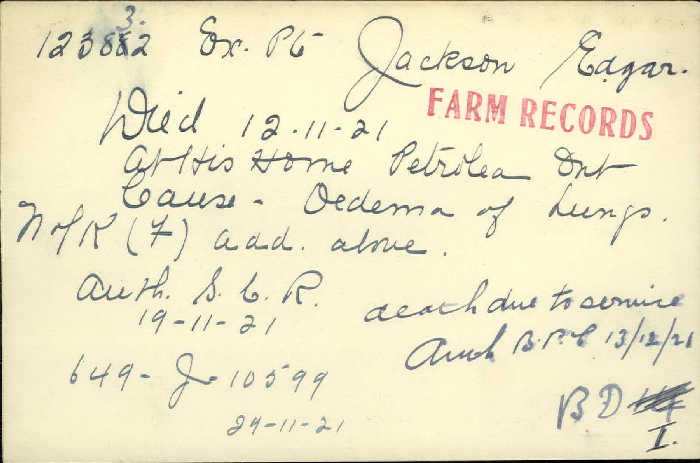 3.
123882 Ex. Pt Jackson Edgar.
FARM RECORDS
Died 12-11-21
At His Home Petrolea Ont
Cause - Oedema of Lungs.
N of K (F) add. above.
Auth. S. C. R.
19-11-21
death due to service
Auth B.P.C 13/12/21
649-J-10599
29-11-21
BD
I.